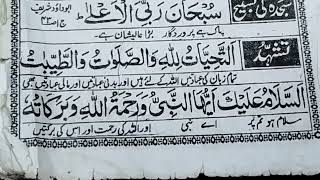 سجدہ کی تسبیح سُبْحَانَ رَبِّيَ الْأَعْلٰى ابوداؤد شریف
پاک ہے پروردگار بڑا عالیشان ہے۔
تشہد اَلتَّحِيَّاتُ لِلّٰهِ وَالصَّلَوٰتُ وَالطَّيِّبٰتُ
تمام زبان کی عبادتیں اللہ کے لئے ہیں اور بدنی عبادتیں اور مالی عبادتیں بھی
اَلسَّلَامُ عَلَيْكَ اَيُّهَا النَّبِيُّ وَرَحْمَةُ اللهِ وَبَرَكَاتُهٗ
سلام ہو تم پر اے نبی اور اللہ کی رحمت اور اس کی برکتیں